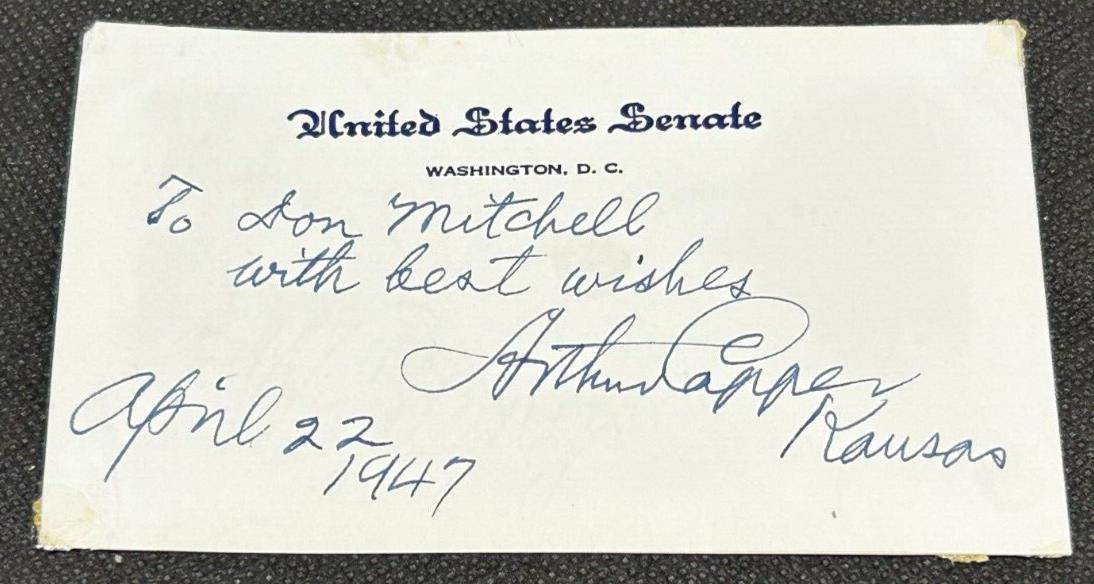 United States Senate
WASHINGTON, D. C.
To Don Mitchell
with best wishes
Arthur Capper
Kansas
April 22
1947